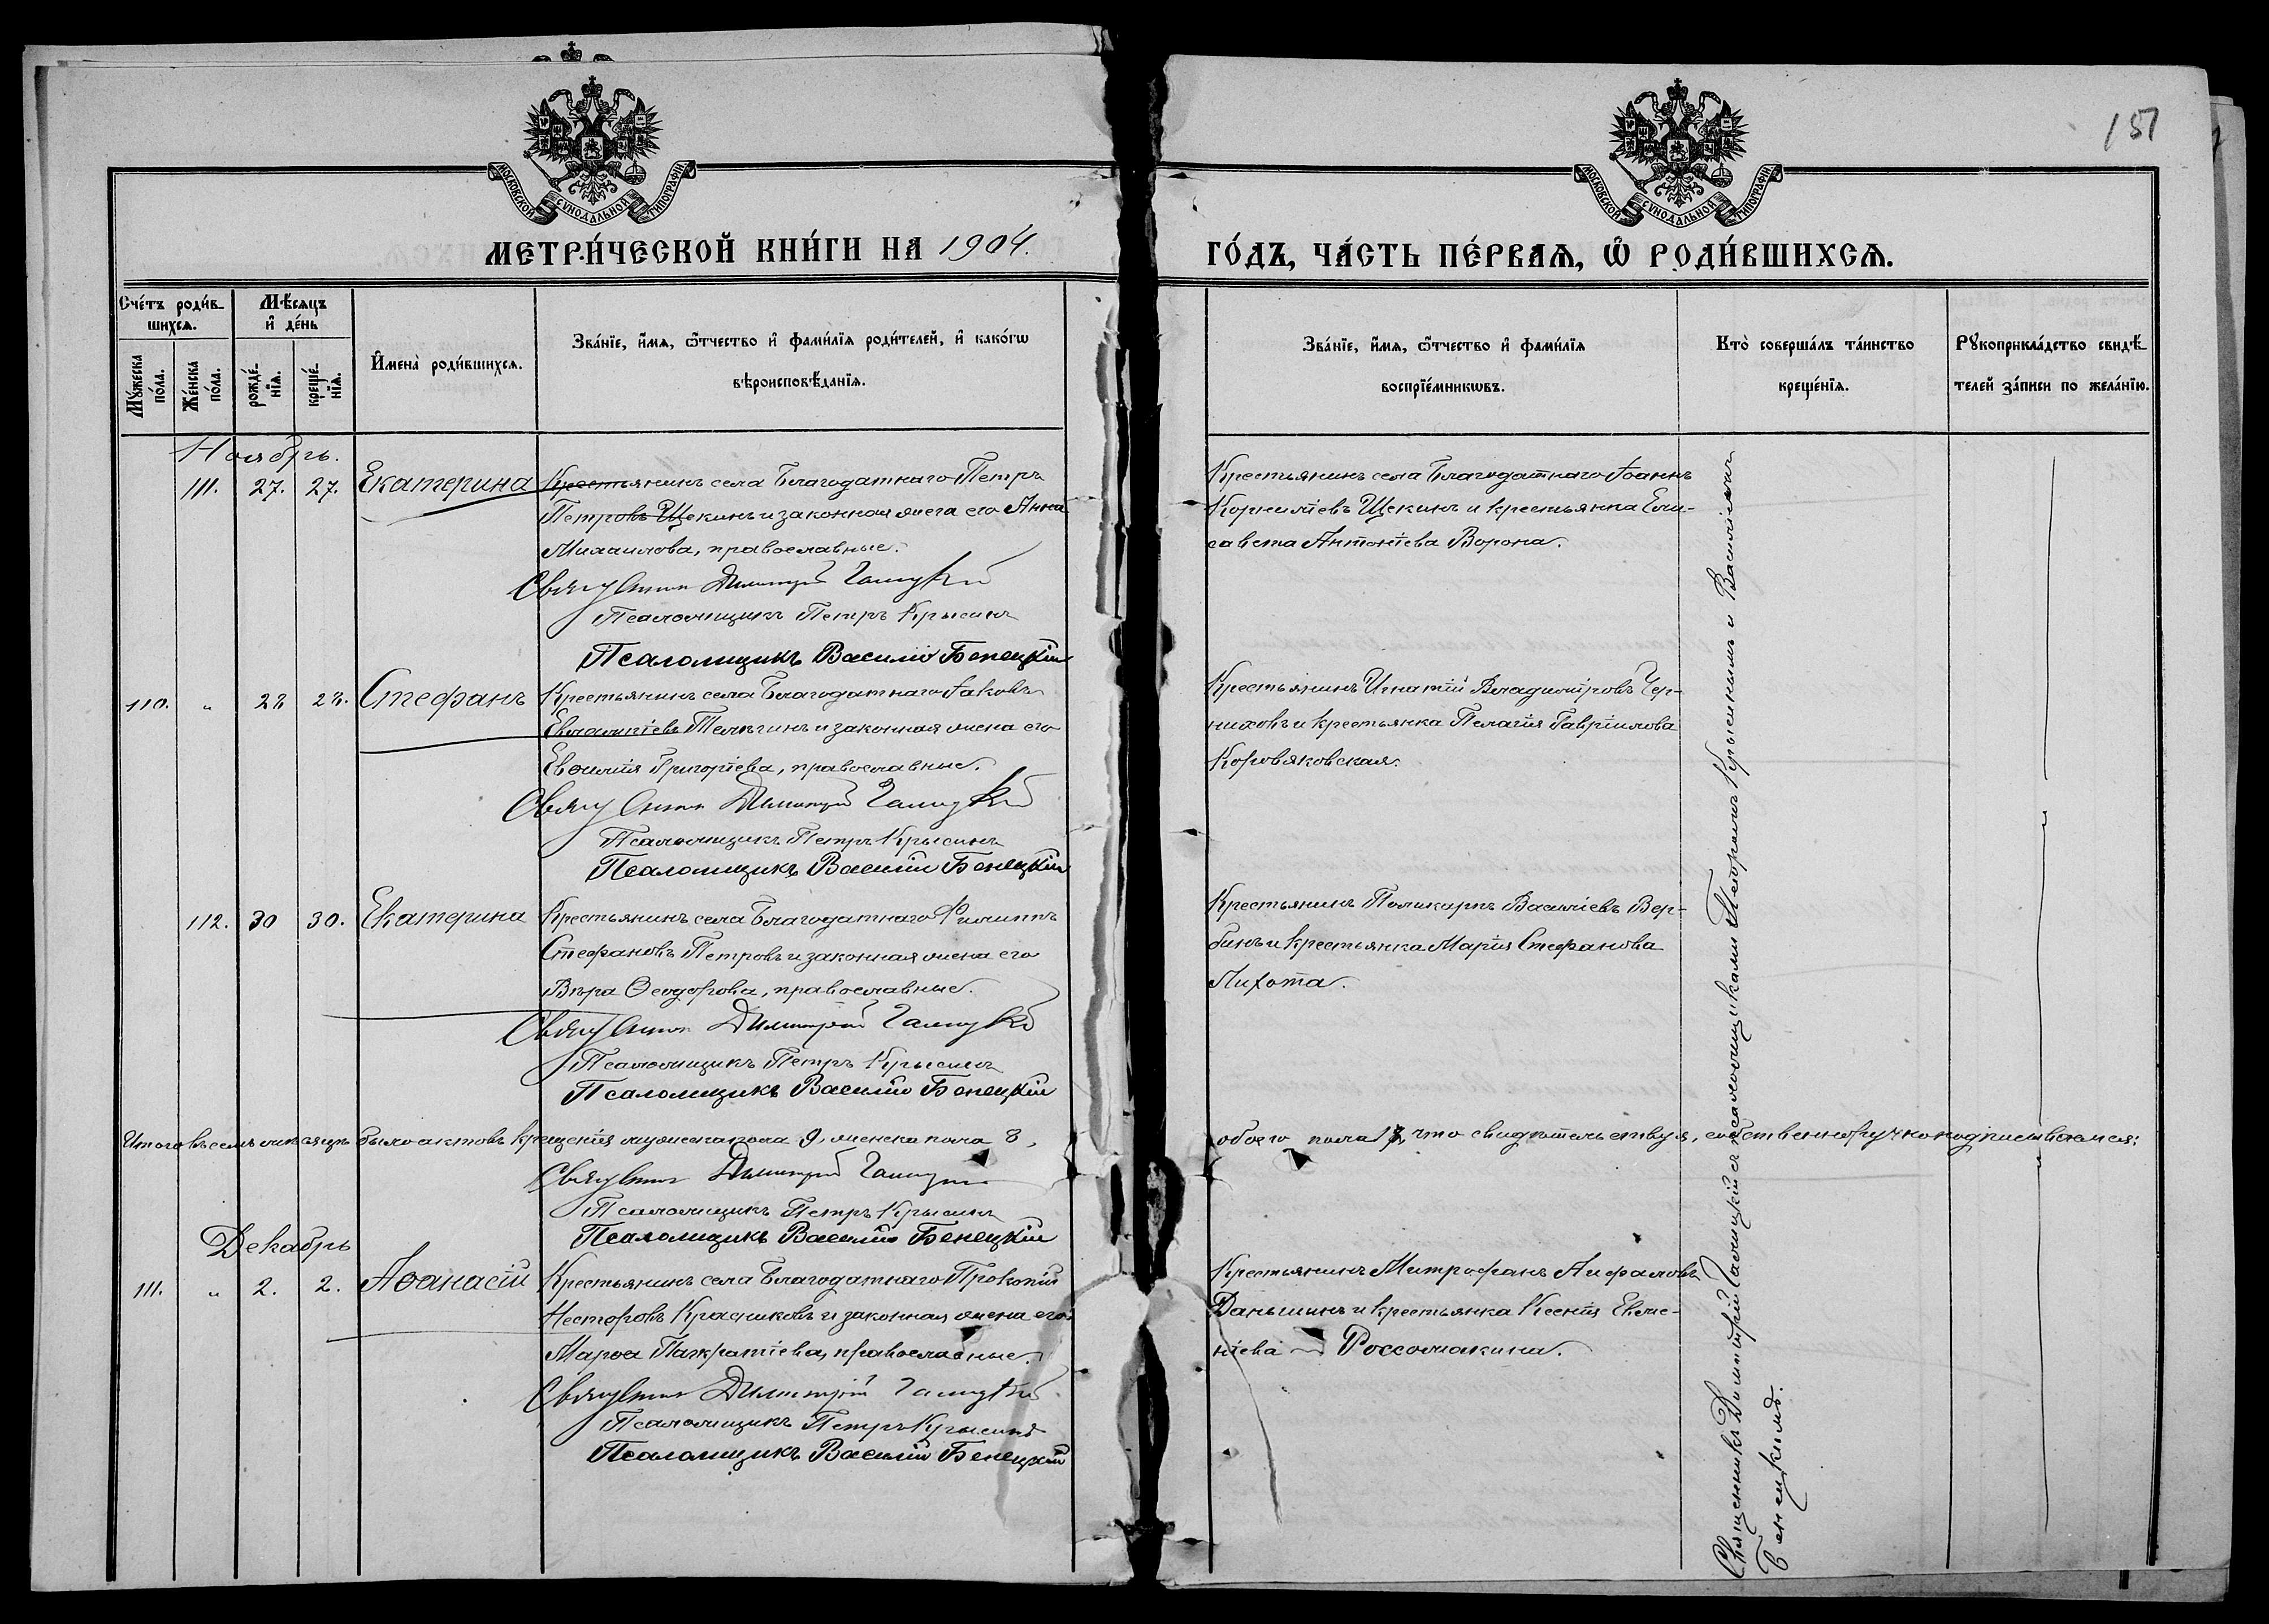 151
МОСКОВСКОЙ СѴНОДАЛЬНОЙ ТИПОГРАФІИ
МОСКОВСКОЙ СѴНОДАЛЬНОЙ ТИПОГРАФІИ
МЕТРИ́ЧЕСКОЙ КНИ́ГИ НА 1904. ГО́ДЪ, ЧА́СТЬ ПЕ́РВАѦ, Ѡ҆ РОДИ́ВШИХСѦ.
Сче́тъ роди́в-
шихсѧ.
Мꙋ́жеска по́ла.
Же́нска по́ла.
Мѣ́сѧцъ
и҆ де́нь
рожде́-
нїѧ.
креще́-
нїѧ.
И҆мена̀ роди́вшихсѧ.
Зва́нїе, и҆́мѧ, ѻ҆́тчество и҆ фами́лїѧ роди́телей, и҆ како́гѡ
вѣроисповѣ́данїѧ.
Зва́нїе, и҆́мѧ, ѻ҆́тчество и҆ фами́лїѧ
воспрїе́мникѡвъ.
Кто̀ соверша́лъ та́инство
креще́нїѧ.
Рꙋкоприкла́дство свидѣ́-
телей за́писи по жела́нїю.
Ноябрь.
111. 27. 27. Екатерина
Крестьянинъ села Благодатнаго Петръ
Петровъ Щекинъ и законная жена его Анна
Михаилова, православные.
Священникъ Димитрій Галицкій
Псаломщикъ Петръ Крысинъ
Псаломщикъ Василій Бенецкій
Крестьянинъ села Благодатнаго Іоаннъ
Корниліевъ Щекинъ и крестьянка Ели-
савета Антоніева Ворона.
110. " 28 28. Стефанъ
Крестьянинъ села Благодатнаго Іаковъ
Евлампіевъ Телѣгинъ и законная жена его
Евфимія Григоріева, православные.
Священникъ Димитрій Галицкій
Псаломщикъ Петръ Крысинъ
Псаломщикъ Василій Бенецкій
Крестьянинъ Игнатій Владиміровъ Чер-
ниховъ и крестьянка Пелагія Гавріилова
Коровяковская.
112. 30 30. Екатерина
Крестьянинъ села Благодатнаго Филиппъ
Стефановъ Петровъ и законная жена его
Вѣра Ѳеодорова, православные.
Священникъ Димитрій Галицкій
Псаломщикъ Петръ Крысинъ
Псаломщикъ Василій Бенецкій
Крестьянинъ Поликарпъ Василіевъ Вер-
бинъ и крестьянка Марія Стефанова
Лихота.
Итого въ семъ мѣсяцѣ было актовъ крещенія мужеска пола 9, женска пола 8, обоего пола 17, что свидѣтельствуя, собственноручно подписываемся:
Священникъ Димитрій Галицкій
Псаломщикъ Петръ Крысинъ
Псаломщикъ Василій Бенецкій
Декабрь
111. " 2. 2. Аѳанасій
Крестьянинъ села Благодатнаго Прокопій
Несторовъ Красниковъ и законная жена его
Марѳа Панкратіева, православные.
Священникъ Димитрій Галицкій
Псаломщикъ Петръ Крысинъ
Псаломщикъ Василій Бенецкій
Крестьянинъ Митрофанъ
Даньшинъ и крестьянка Ксенія Евме-
ніева Россомахина.
Священникъ Димитрій Галицкій съ псаломщиками Петромъ Крысинымъ и Василіемъ
Бенецкимъ.